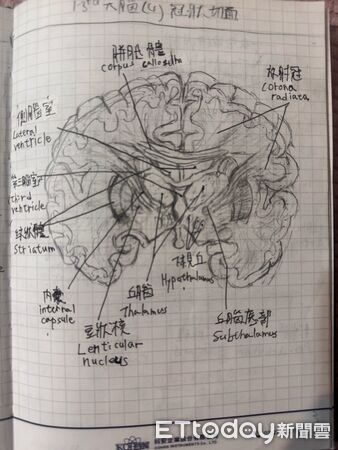 大腦(4) 冠狀切面
胼胝體
corpus callosum
放射冠
Corona
radiata
側腦室
Lateral
ventricle
第三腦室
Third
ventricle
紋狀體
Striatum
內囊
internal
capsule
豆狀核
Lenticular
nucleus
丘腦
Thalamus
視丘
Hypothalamus
丘腦底部
Subthalamus
ETtoday新聞雲